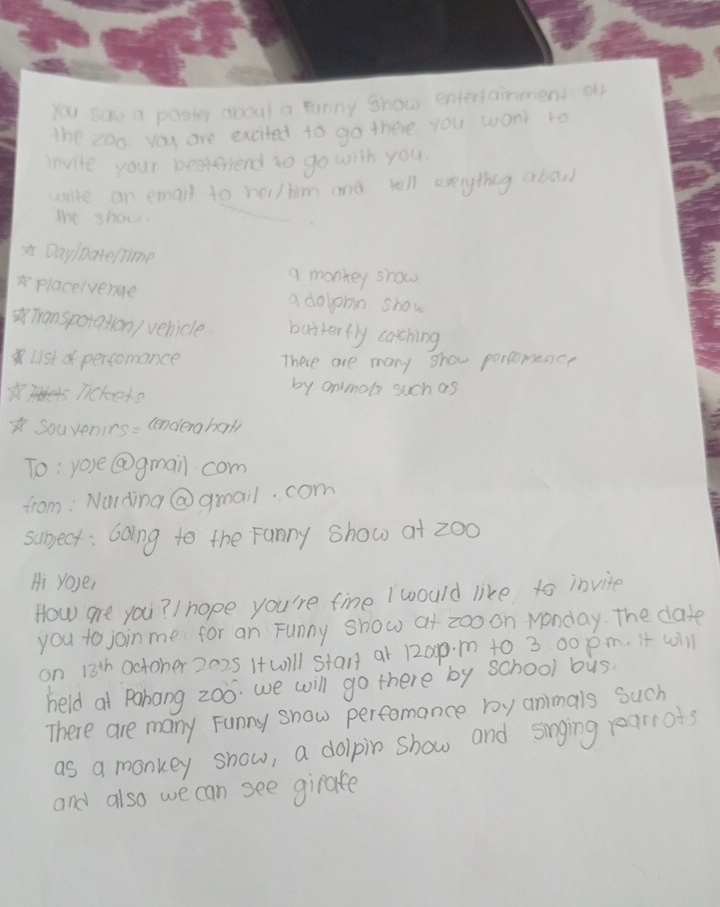 You saw a poster about a Funny Show entertainment at
the zoo. You are excited to go there. You want to
invite your bestfriend to go with you.
write an email to her/him and tell everything about
the show.
☆ Day/Date/Time
☆ Place/venue
☆ Transpotation/vehicle
☆ List of perfomance
☆ Tickets
☆ Souvenirs = Cenderahati
a monkey show
a dolphin show
butterfly catching
there are many show perfomance
by animals such as
To : yoje@gmail.com
from : Nurdina@gmail.com
subject : Going to the Funny Show at zoo
Hi Yoje,
How are you? I hope you're fine I would like to invite
you to join me for an Funny Show at zoo on Monday. The date
on 13th October 2025 It will start at 12.00p.m to 3.00p.m. It will
held at Pahang zoo. we will go there by school bus.
There are many Funny show perfomance by animals such
as a monkey show, a dolpin show and singing parrots
and also we can see girafe